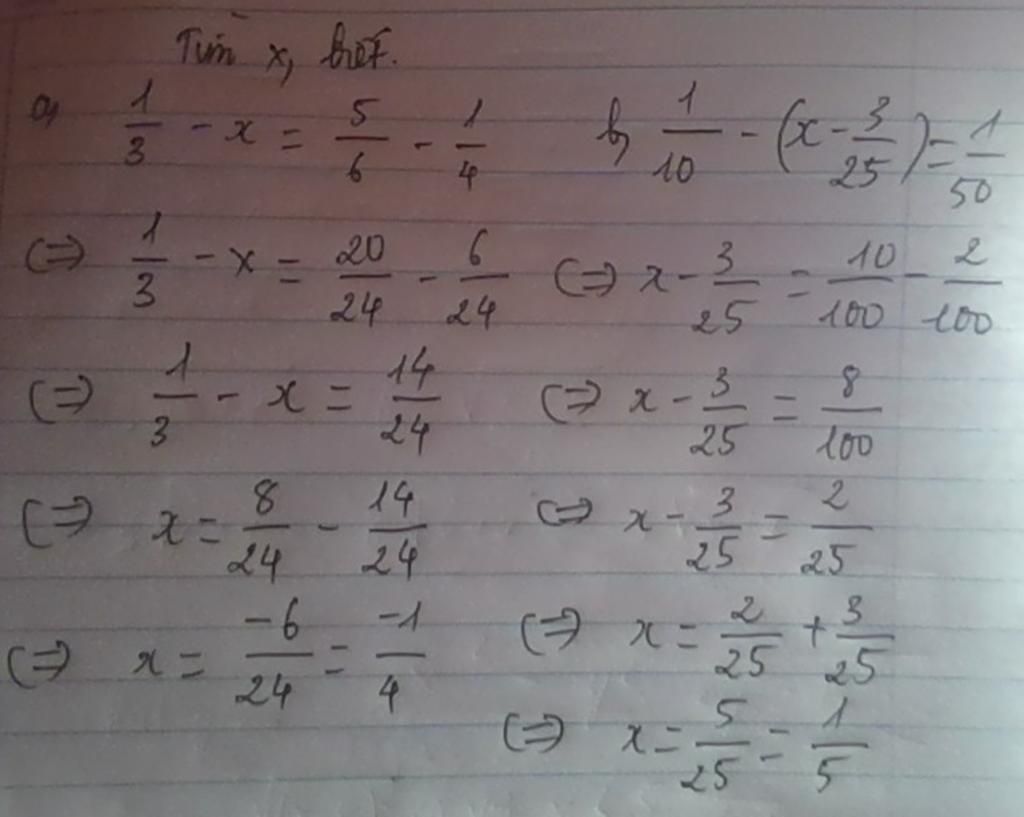 Tìm x, biết.
a, 1/3 - x = 5/6 - 1/4
(=) 1/3 - x = 20/24 - 6/24
(=) 1/3 - x = 14/24
(=) x = 8/24 - 14/24
(=) x = -6/24 = -1/4
b, 1/10 - (x - 3/25) = 1/50
(=) x - 3/25 = 10/100 - 2/100
(=) x - 3/25 = 8/100
(=) x - 3/25 = 2/25
(=) x = 2/25 + 3/25
(=) x = 5/25 = 1/5